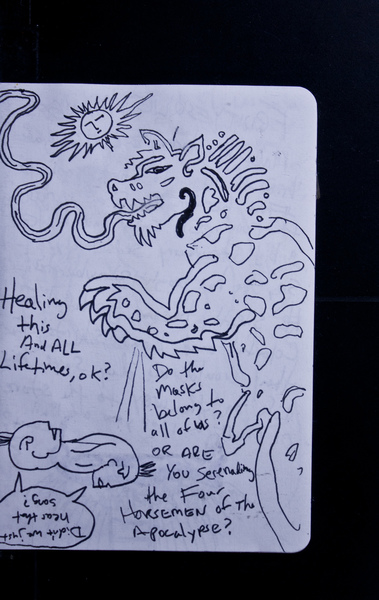 Healing
this
And ALL
Lifetimes, ok?
Do the
Masks
belong to
all of us?
OR ARE
You Serenading
the Four
HORSEMEN OF The
Apocalypse?
Didn't we just
hear that
song?